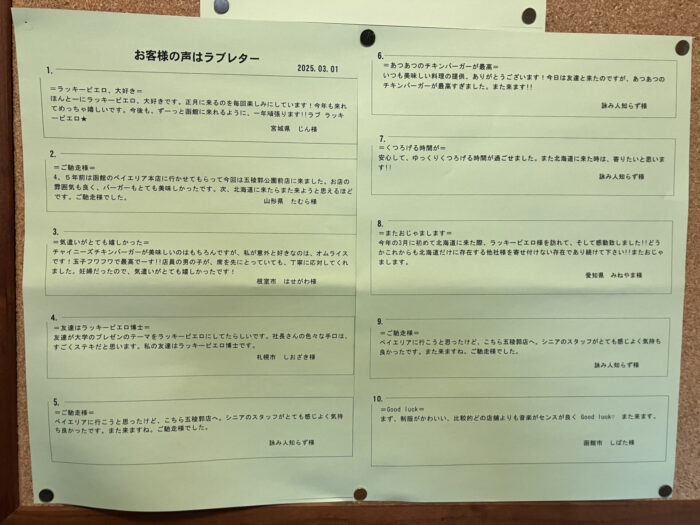 お客様の声はラブレター
2025.03.01
1.
＝ラッキーピエロ、大好き＝
ほんとーにラッキーピエロ、大好きです。正月に来るのを毎回楽しみにしています！今年も来れ
てめっちゃ嬉しいです。今後も、ずーっと函館に来れるように、一年頑張ります!!ラブ ラッキ
ーピエロ★
宮城県　じん様
2.
＝ご馳走様＝
4、5年前は函館のベイエリア本店に行かせてもらって今回は五稜郭公園前店に来ました。お店の
雰囲気も良く、バーガーもとても美味しかったです。次、北海道に来たらまた来ようと思えるほど
です。ご馳走様でした。
山形県　たむら様
3.
＝気遣いがとても嬉しかった＝
チャイニーズチキンバーガーが美味しいのはもちろんですが、私が意外と好きなのは、オムライス
です！玉子フワフワで最高でーす!!店員の男の子が、席を先にとっていても、丁寧に応対してくれ
ました。妊婦だったので、気遣いがとても嬉しかったです！
根室市　はせがわ様
4.
＝友達はラッキーピエロ博士＝
友達が大学のプレゼンのテーマをラッキーピエロにしてたらしいです。社長さんの色々な手口は、
すごくステキだと思います。私の友達はラッキーピエロ博士です。
札幌市　しおざき様
5.
＝ご馳走様＝
ベイエリアに行こうと思ったけど、こちら五稜郭店へ。シニアのスタッフがとても感じよく気持
ち良かったです。また来ますね。ご馳走様でした。
詠み人知らず様
6.
＝あつあつのチキンバーガーが最高＝
いつも美味しい料理の提供、ありがとうございます！今日は友達と来たのですが、あつあつの
チキンバーガーが最高すぎました。また来ます!!
詠み人知らず様
7.
＝くつろげる時間が＝
安心して、ゆっくりくつろげる時間が過ごせました。また北海道に来た時は、寄りたいと思いま
す!!
詠み人知らず様
8.
＝またおじゃまします＝
今年の3月に初めて北海道に来た際、ラッキーピエロ様を訪れて、そして感動致しました!!どう
かこれからも北海道だけに存在する他社様を寄せ付けない存在であり続けて下さい!!またおじゃ
まします。
愛知県　みねやま様
9.
＝ご馳走様＝
ベイエリアに行こうと思ったけど、こちら五稜郭店へ。シニアのスタッフがとても感じよく気持ち
良かったです。また来ますね。ご馳走様でした。
詠み人知らず様
10.
＝Good luck＝
まず、制服がかわいい、比較的どの店舗よりも音楽がセンスが良く Good luck♡　また来ます。
函館市　しばた様